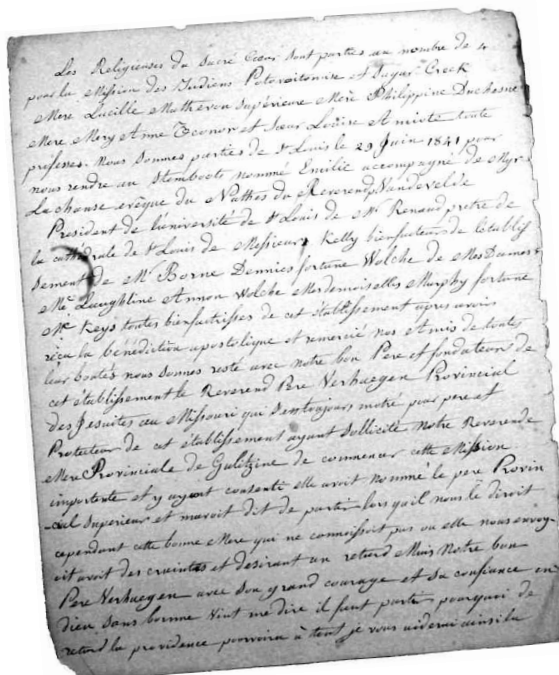 Les Religieuses du Sacré Cœur sont parties au nombre de 4
pour la Mission des Indiens Potowatomise et Sugar Creek
Mere Lucille Matheron Supérieure Mère Philippine Duchesne
Mere Mery Anne Oconor et Sœur Louise Amiote toute
professes. Nous sommes parties de St Louis le 29 Juin 1841 pour
nous rendre au Stemboete nommé Emilie accompagné de Mgr
Lachanse evêque du Nathes du Reverend Vandevelde
President de l'université de St Louis de Mr Renaud pretre de
la cathédrale de St Louis de Messieurs Kelly bienfaiteurs de l'établis
sement de Mr Borne Dennies fortune Wolche de Mes Dames
Mc Laughline Annon Wolche Mesdemoiselles Murphy fortune
Mc Keys toutes bienfactrisses de cet établissement apres avoir
recu la bénédiction apostolique et remercié nos Amis de toutes
leur boutes nous somes resté avec notre bon Pere et fondateur de
cet établissement le Reverend Pere Verhaegen Provincial
des Jesuites au Missouri qui sest toujours motré pour pere et
Protecteur de cet établissement ayant sollicité notre Reverende
Mere Provinciale de Galitzine de commencer cette Mission
importente et y ayant consenti elle avoit nommé le pere Provin
-cial Superieur et mavoit dit de partir lors qu'il nous le diroit
cependant cette bonne Mere qui ne connoissoit pas ou elle nous envoy-
oit avoit des craintes et desirant un retard Mais Notre bon
Pere Verhaegen avec son grand courage et sa confiance en
dieu sans borme vint me dire il faut partir pourquoi de
retard la providence pourvoira à tout je vous aiderai ainsi la